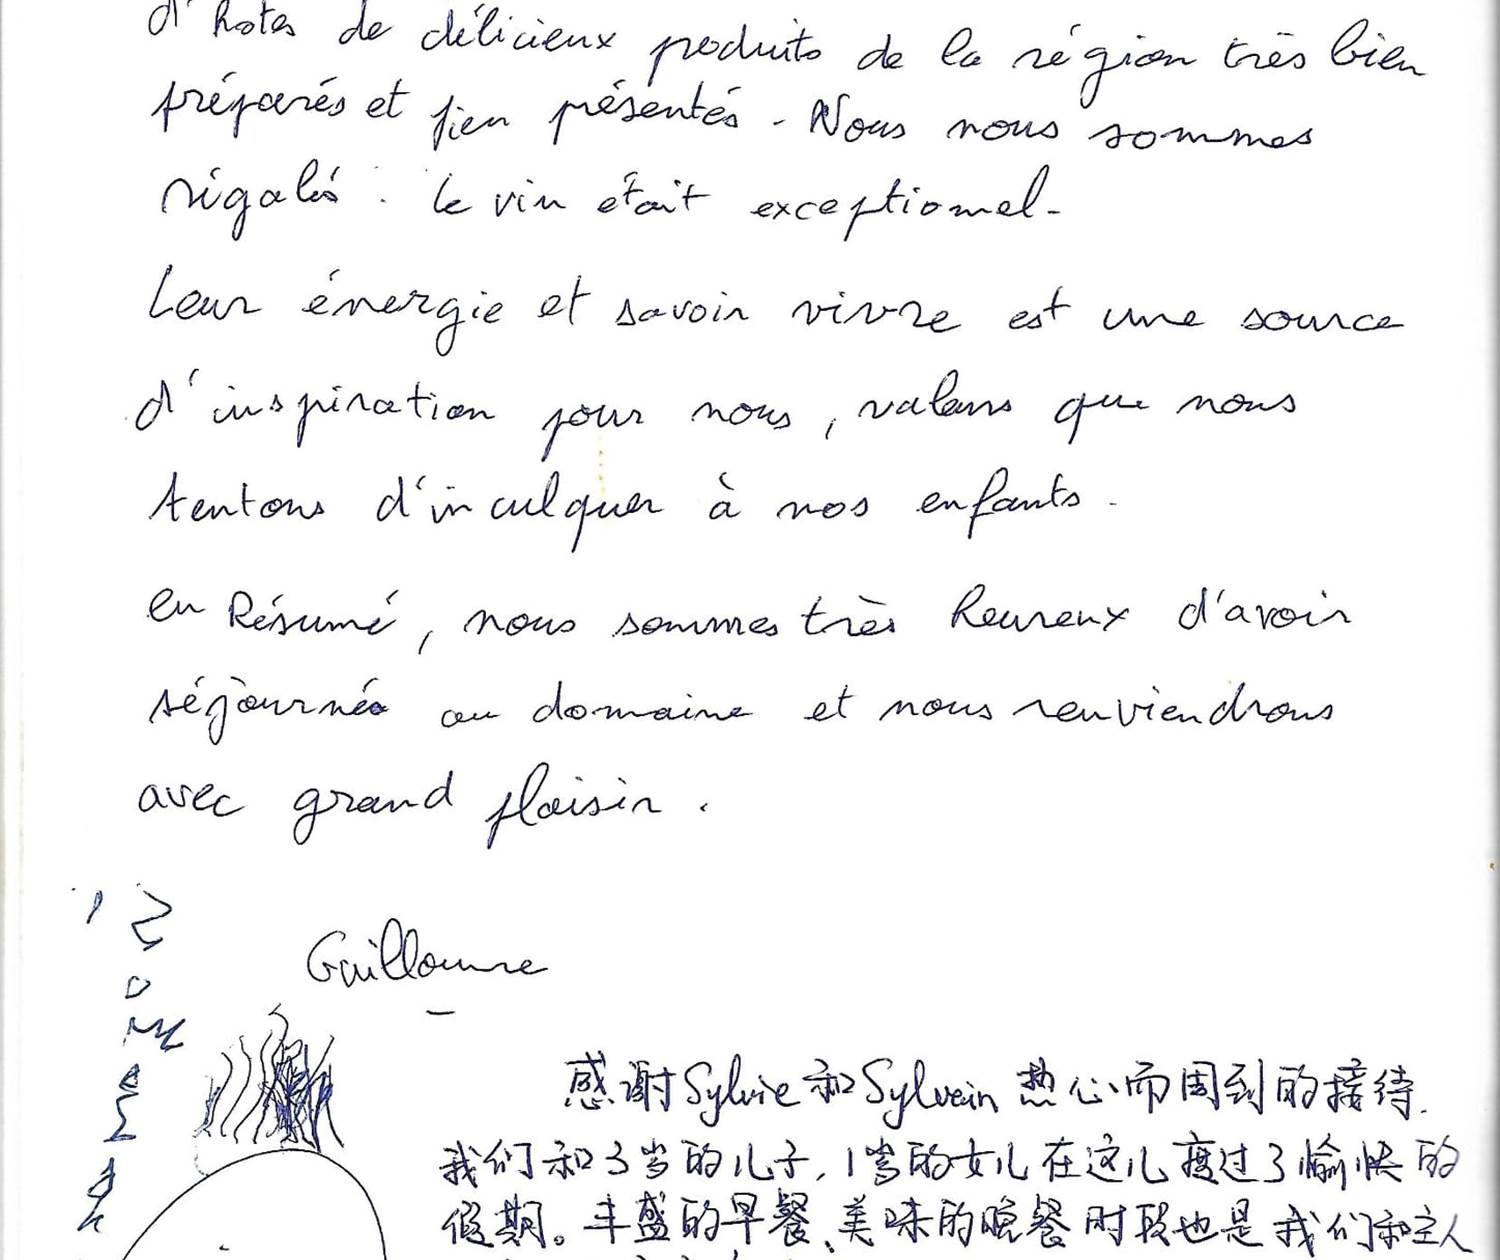 d'hotes de délicieux produits de la région très bien
préparés et bien présentés - Nous nous sommes
régalés. Le vin était exceptionnel -
Leur énergie et savoir vivre est une source
d'inspiration pour nous, valeurs que nous
tentons d'inculquer à nos enfants.
en Résumé, nous sommes très heureux d'avoir
séjournés au domaine et nous reviendrons
avec grand plaisir.
Guillaume
感谢Sylvie和Sylvain热心而周到的接待.
我们和3岁的儿子,1岁的女儿在这儿度过了愉快的
假期。丰盛的早餐、美味的晚餐时段也是我们和主人